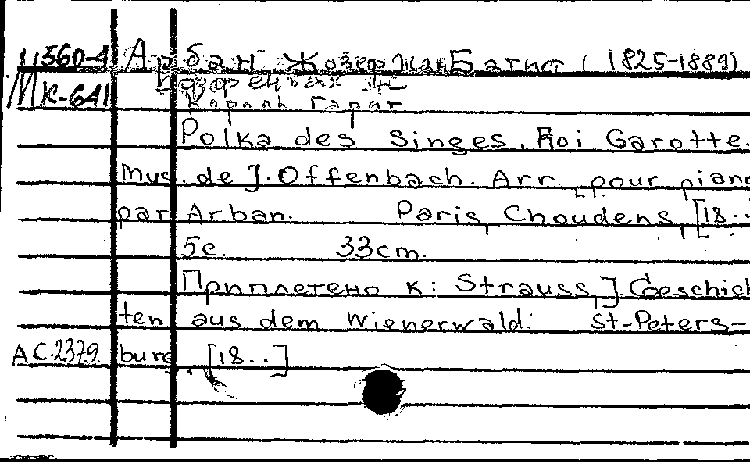 11560-4 Арбан, Жозеф Жан Батист (1825-1889)
МК-641 Оффенбах Ж.
Король Гарот
Polka des Singes. Roi Carotte.
Mus. de J. Offenbach. Arr. pour piano
par Arban. Paris, Choudens, [18..
5с. 33cm.
Приплетено к: Strauss, J. Geschich
ten aus dem Wienerwald. St-Peters-
AC.2379 burg, [18..]